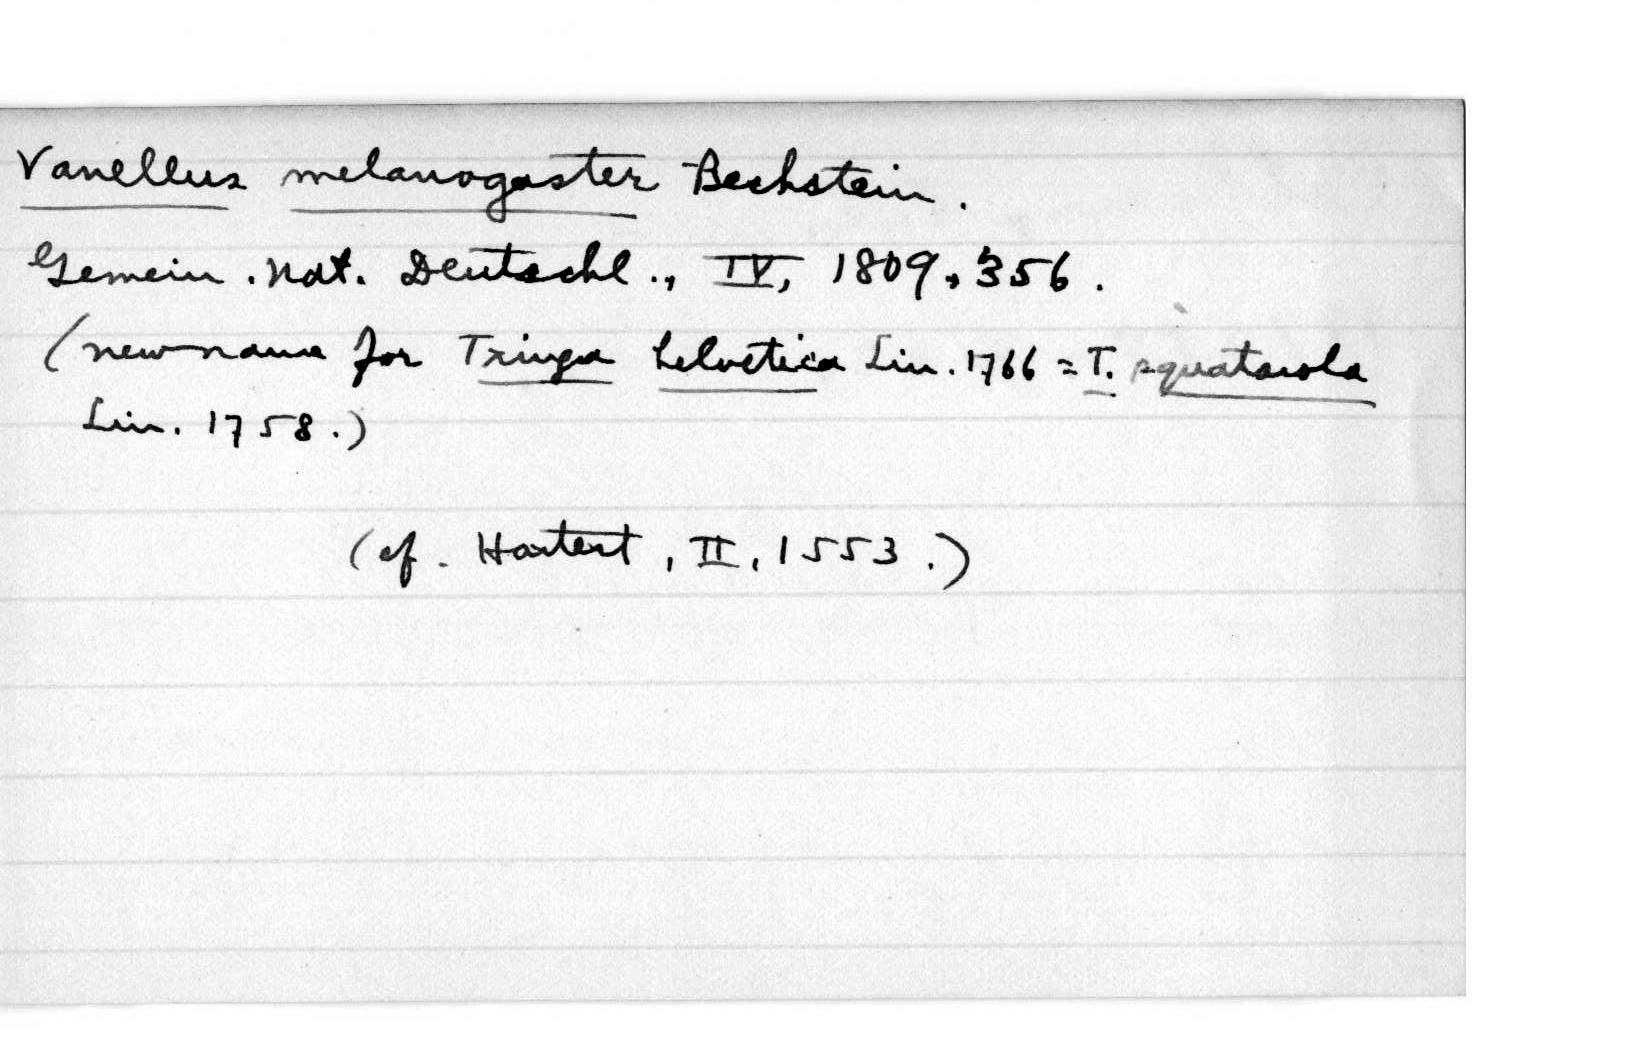 Vanellus melanogaster Bechstein.
Gemein. Nat. Deutschl., IV, 1809, 356.
(new name for Tringa helvetica Lin. 1766 = T. squatarola
Lin. 1758.)
(cf. Hartert, II, 1553.)